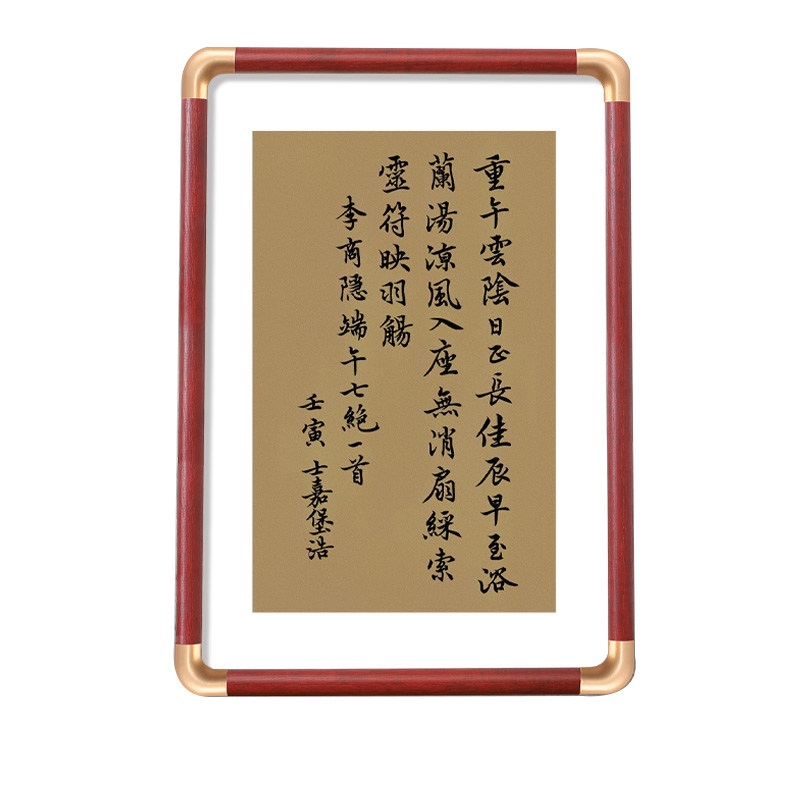 重午雲陰日正長佳辰早至浴
蘭湯涼風入座無消扇綵索
靈符映羽觴
李商隱端午七絕一首
壬寅 士嘉堡浩